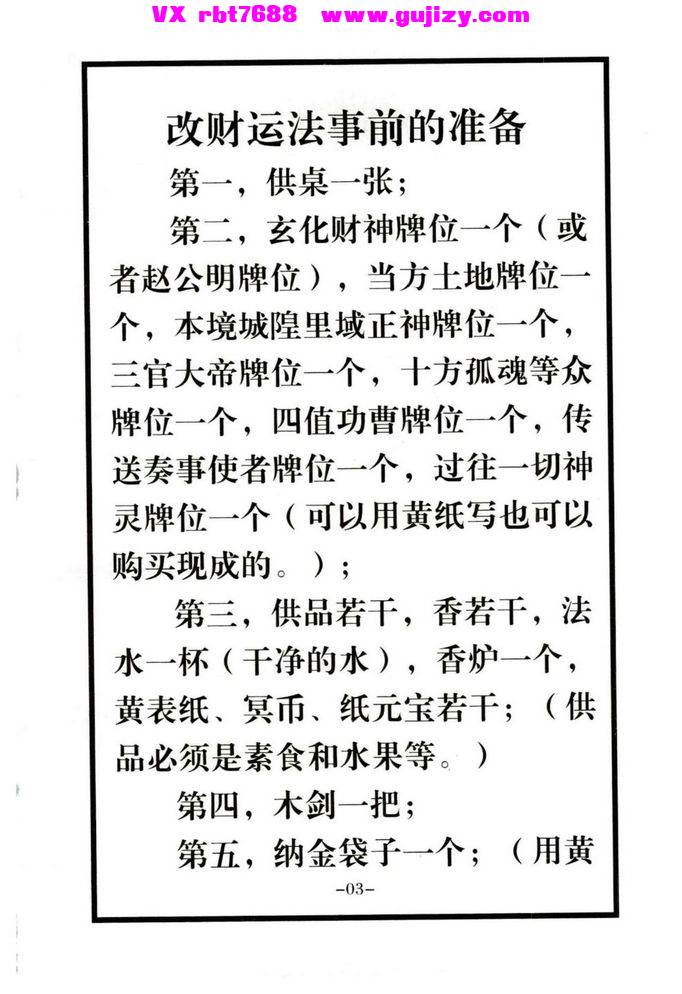 VX rbt7688 www.gujizy.com
改财运法事前的准备
第一，供桌一张；
第二，玄化财神牌位一个（或
者赵公明牌位），当方土地牌位一
个，本境城隍里域正神牌位一个，
三官大帝牌位一个，十方孤魂等众
牌位一个，四值功曹牌位一个，传
送奏事使者牌位一个，过往一切神
灵牌位一个（可以用黄纸写也可以
购买现成的。）；
第三，供品若干，香若干，法
水一杯（干净的水），香炉一个，
黄表纸、冥币、纸元宝若干；（供
品必须是素食和水果等。）
第四，木剑一把；
第五，纳金袋子一个；（用黄
-03-